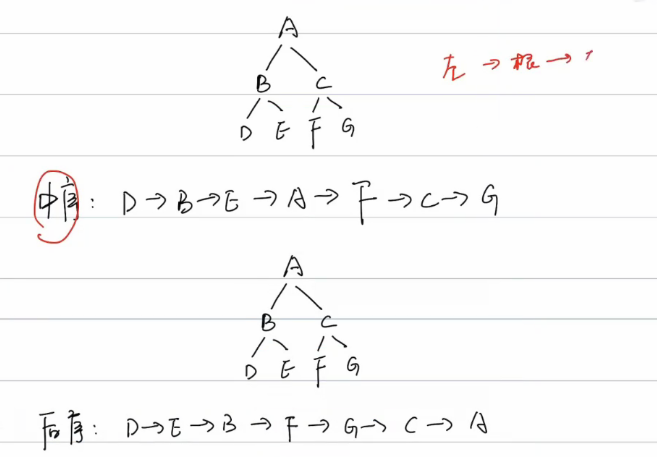 A
左 → 根 →
B C
D E F G
中序: D → B → E → A → F → C → G
A
B C
D E F G
后序: D → E → B → F → G → C → A